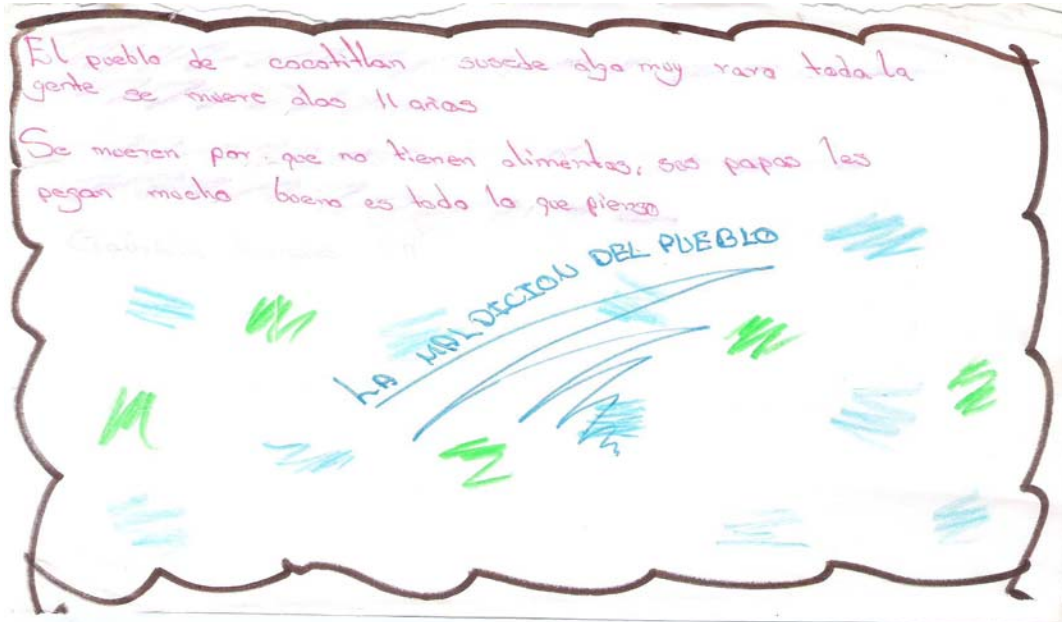 El pueblo de cocotitlan susede algo muy raro toda la
gente se muere alos 11 años
Se mueren por que no tienen alimentos, sus papas les
pegan mucho bueno es todo lo que pienso
LA MALDICION DEL PUEBLO